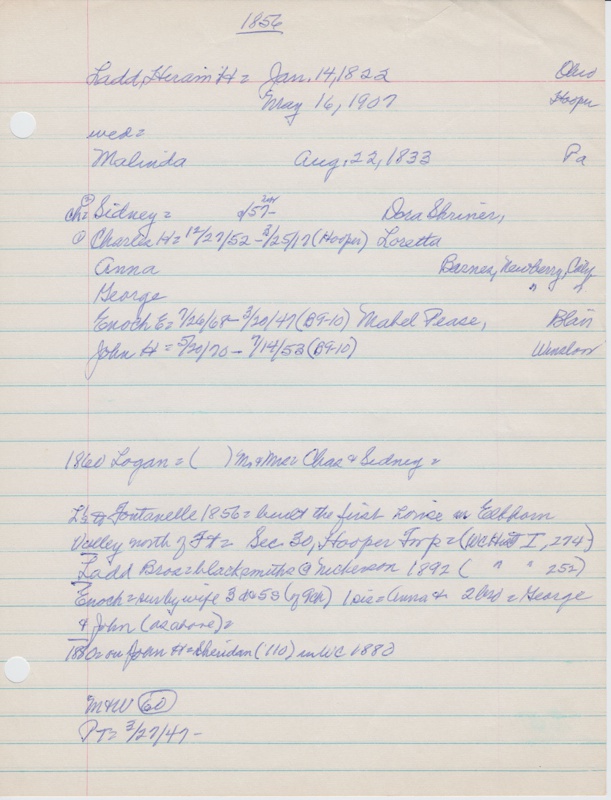 1856
Ladd, Hiram H = Jan. 14, 1822 Ohio
May 16, 1907 Hooper
wed =
Malinda Aug, 22, 1833 Pa
ch = Sidney = Dora Shriner,
① Charles H = 12/27/52 - 3/25/17 (Hooper) Loretta
Anna Barnes, Newberry, City
George " "
Enoch E = 7/26/68 - 3/20/47 (B9-10) Mabel Pease, Blair
John H = 5/20/70 - 7/14/53 (B9-10) Winslow
1860 Logan = ( ) Mr & Mrs = Chas & Sidney =
Fontanelle 1856 = built the first house in Elkhorn
Valley north of Ft = Sec 30, Hooper Twp = (WC Hist I, 274)
Ladd Bros = blacksmiths @ Nickerson 1892 ( " " 252)
Enoch = surby wife 3 da 5s 1 sis = Anna & 2 bro = George
& John (as above) =
1880 = on John H = Sheridan (110) in WC 1880
M & W 60
PT = 3/27/47 -